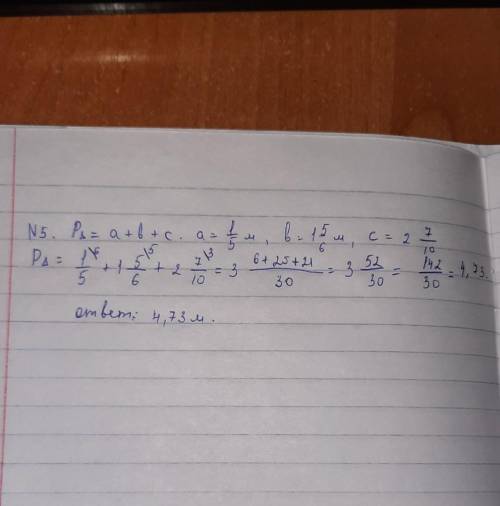 N5. P△ = a + b + c. a = 1/5 м, b = 1 5/6 м, c = 2 7/10
P△ = 1\6/5 + 1 5\5/6 + 2 7\3/10 = 3 6+25+21/30 = 3 52/30 = 142/30 = 4,73.
ответ: 4,73 м.